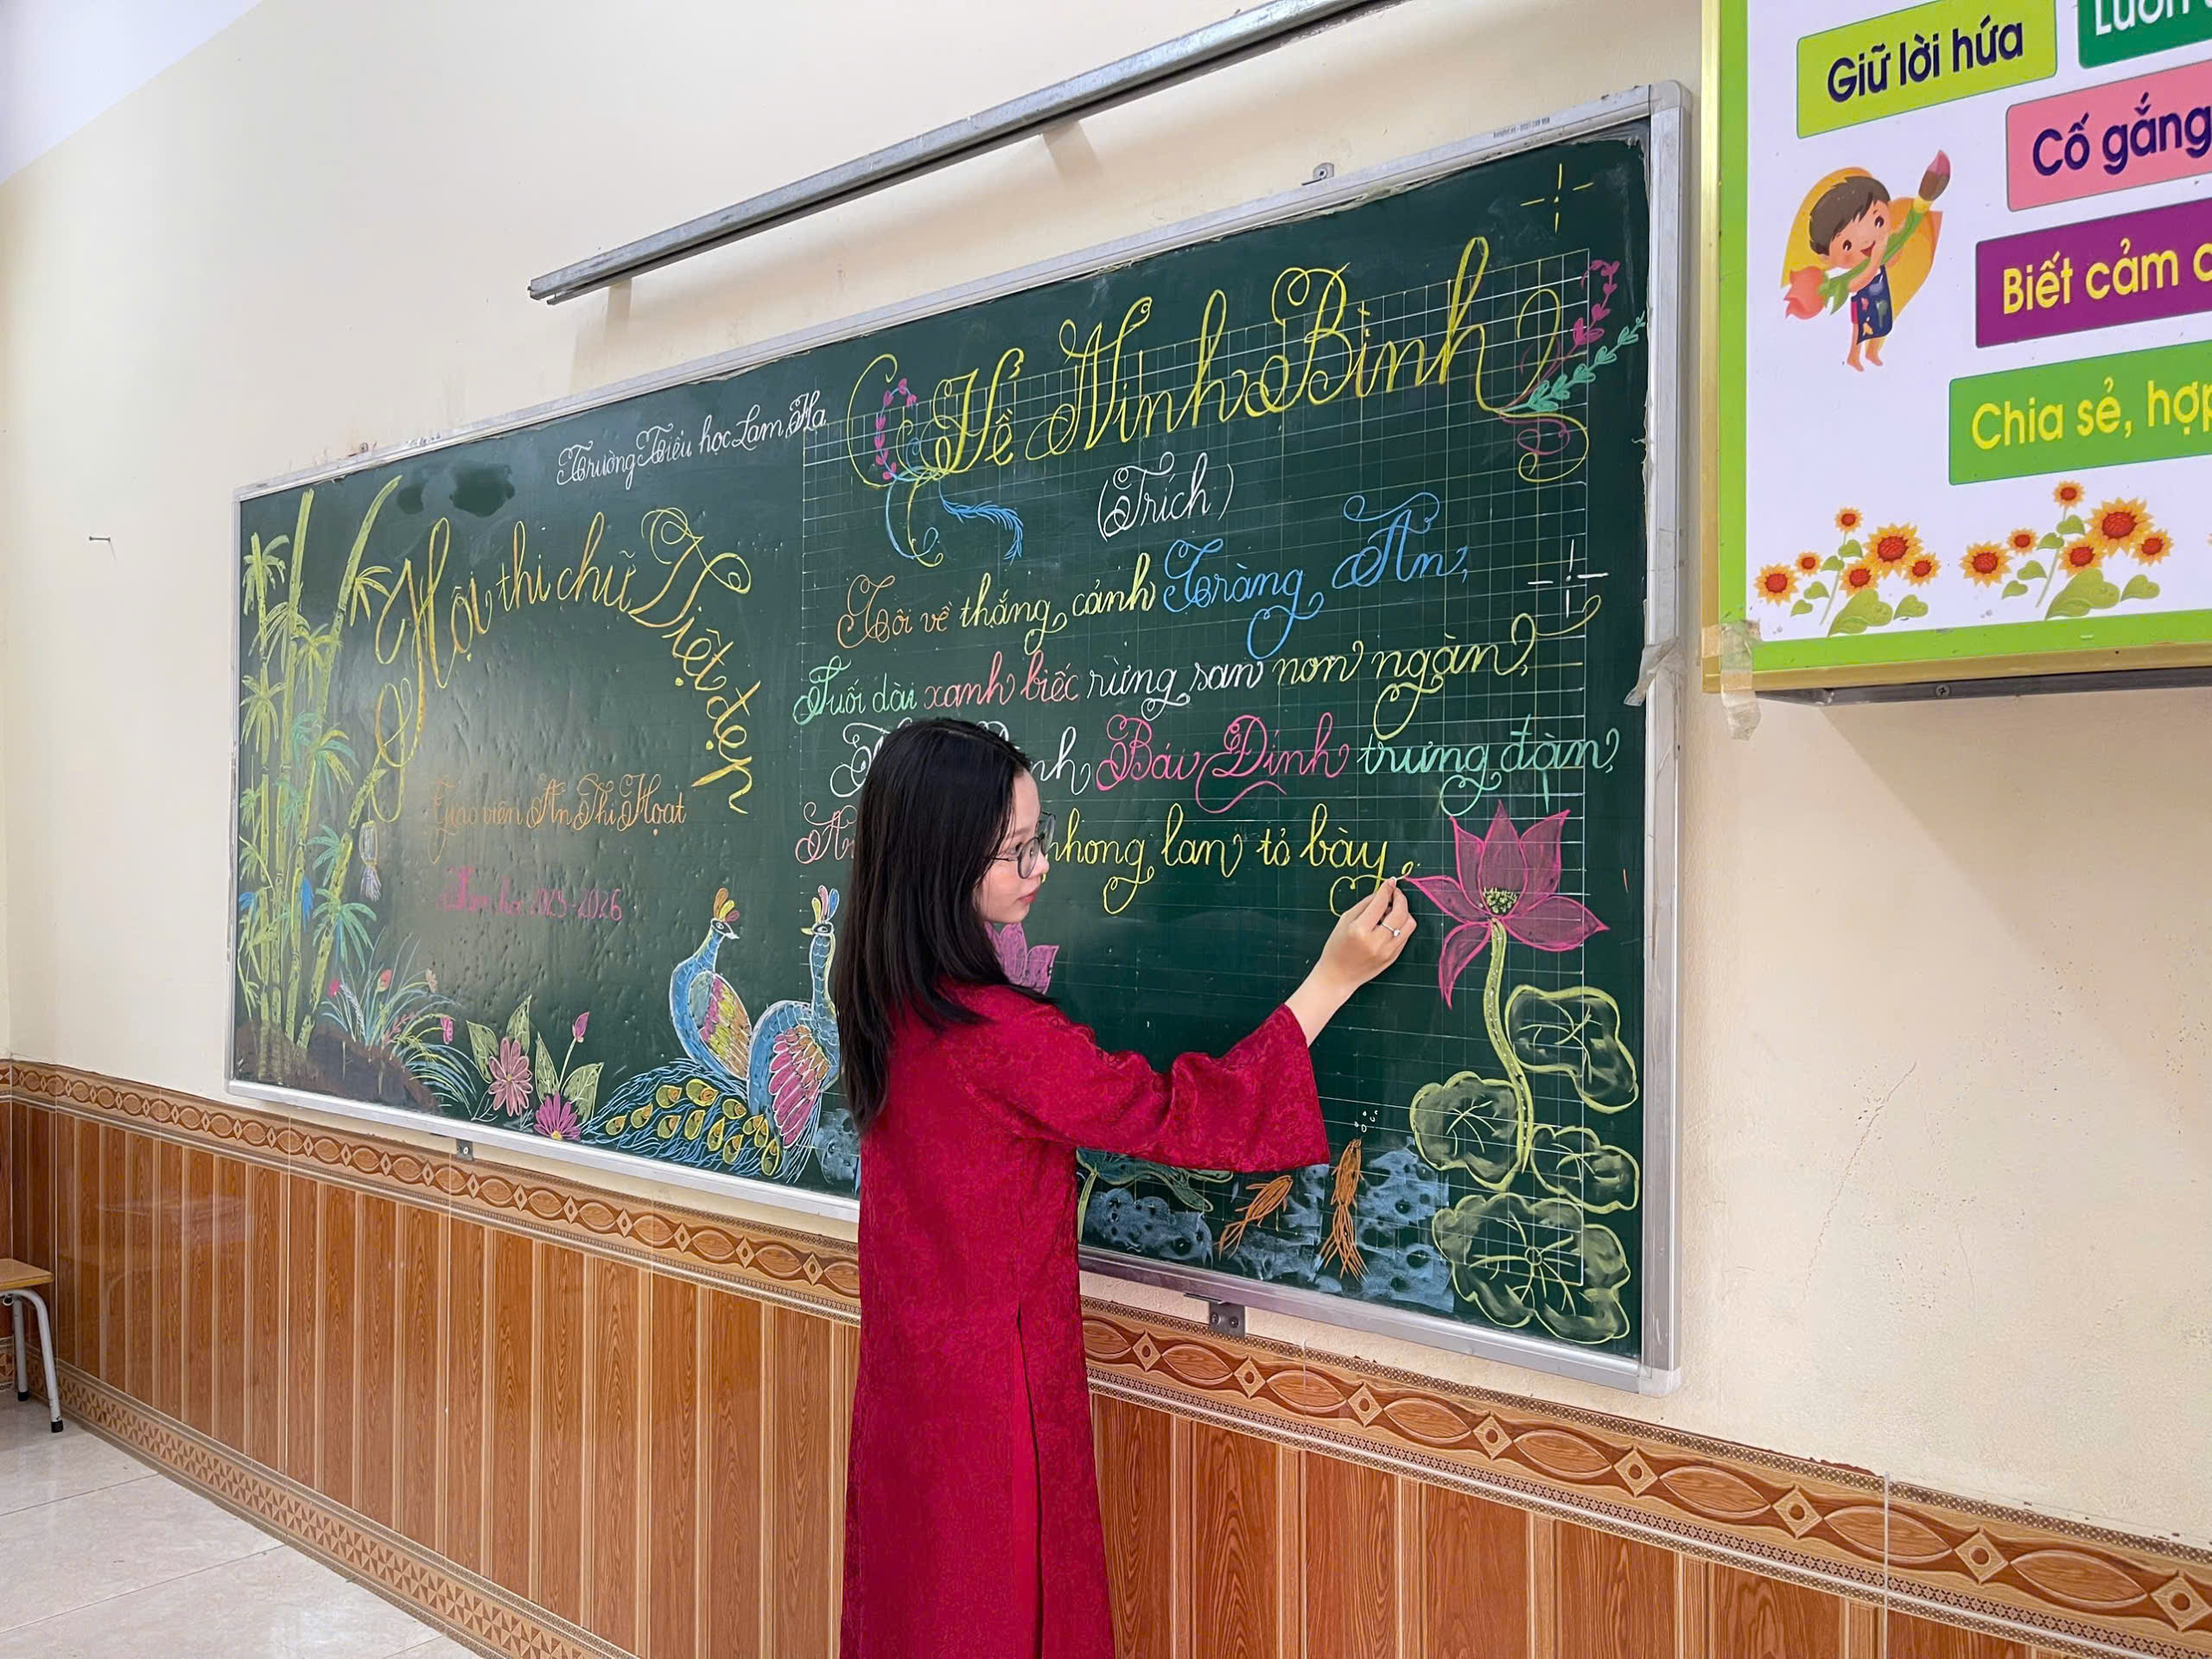 Trường Tiểu học Lam Hạ
Hội thi chữ Việt đẹp
Giáo viên An Thị Hoạt
Năm học 2025-2026
Về Ninh Bình
(Trích)
Tôi về thắng cảnh Tràng An,
Suối dài xanh biếc rừng san non ngàn,
Bái Đính trưng đàn,
phong lan tỏ bày.
Giữ lời hứa
Luôn
Cố gắng
Biết cảm
Chia sẻ, hợp